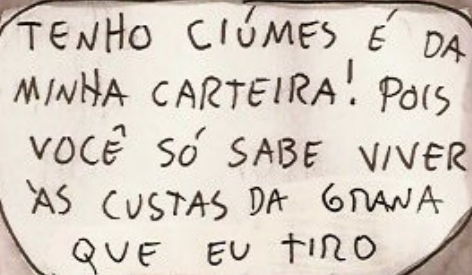 TENHO CIÚMES É DA
MINHA CARTEIRA! POIS
VOCÊ SÓ SABE VIVER
ÀS CUSTAS DA GRANA
QUE EU TIRO